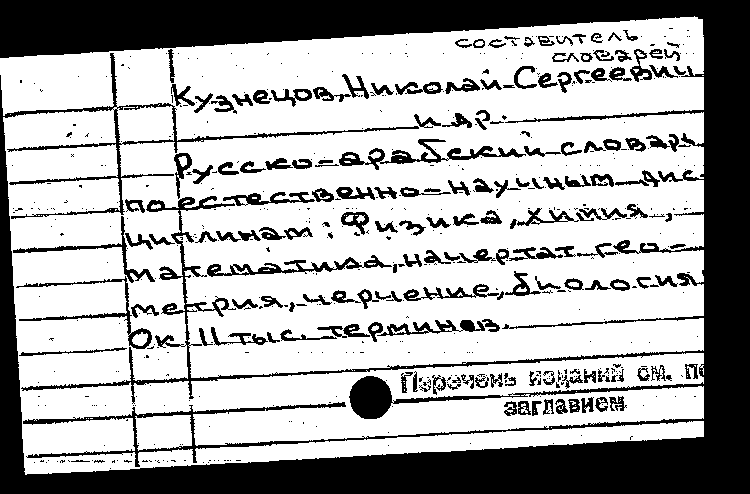 составитель
словарей
Кузнецов, Николай Сергеевич
и др.
Русско-арабский словарь
по естественно-научным дис-
циплинам: Физика, химия,
математика, начертат. гео-
метрия, черчение, биология
Ок 11 тыс. терминов.
Перечень изданий см. по
заглавием